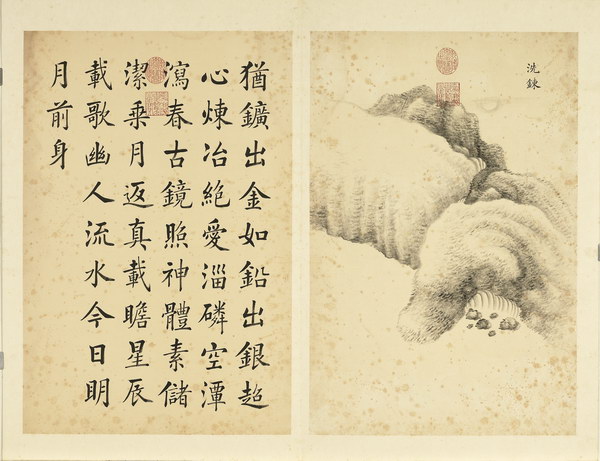 洗鍊
猶鑛出金如鉛出銀超
心煉冶絕愛淄磷空潭
瀉春古鏡照神體素儲
潔乘月返真載瞻星辰
載歌幽人流水今日明
月前身